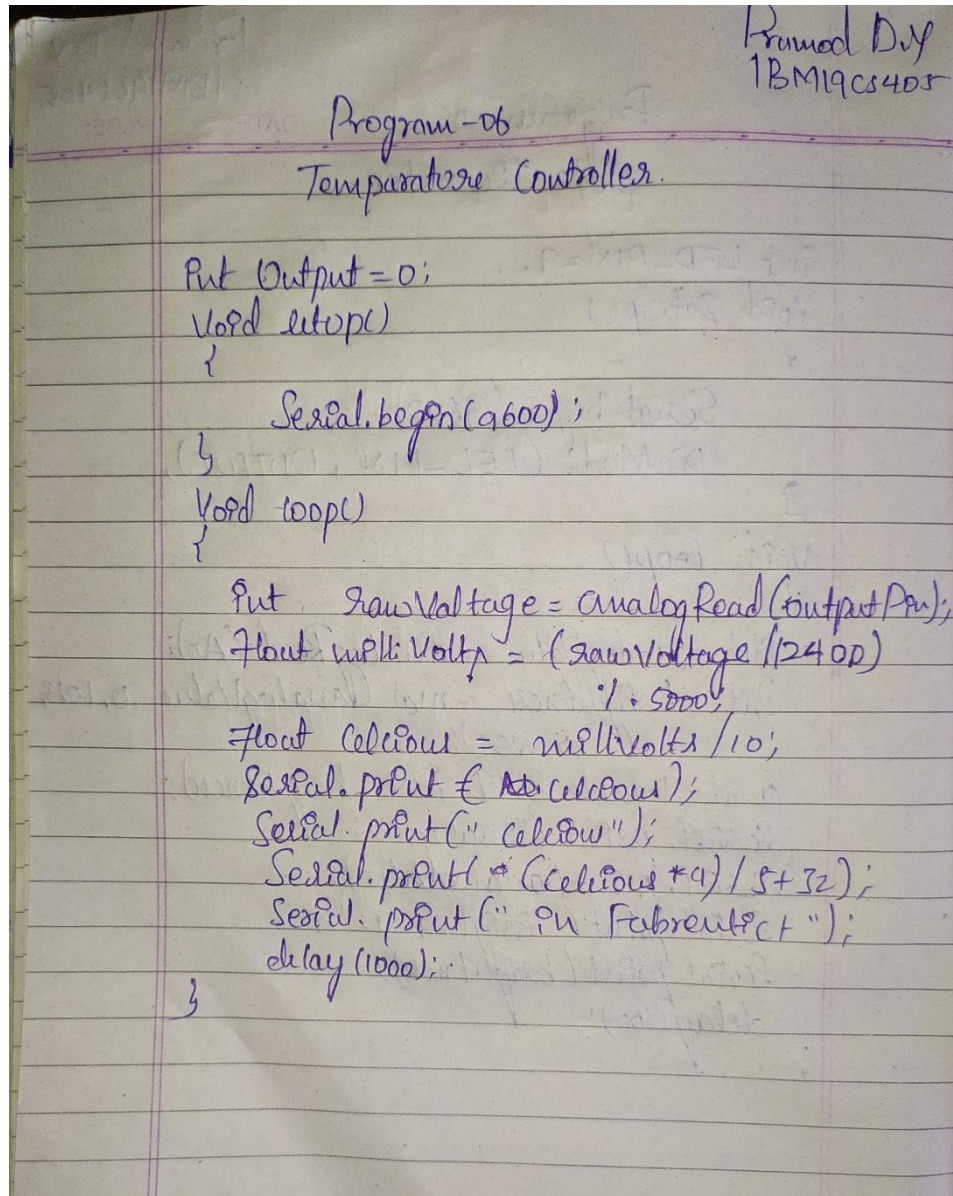 Pramod D.Y
1BM19CS405
Program-06
Temparature Controller.
int Output=0;
Void setup()
{
Serial.begin(9600);
}
Void loop()
{
int rawVoltage = analogRead(outputPin);
Float milliVolts = (rawVoltage/1240D)
% 5000;
Float Celcious = millivolts/10;
Serial.print ( celcious);
Serial.print(" Celcious");
Serial.print( (Celcious *9)/5+32);
Serial.print(" in Fahrenhict ");
delay(1000);
}